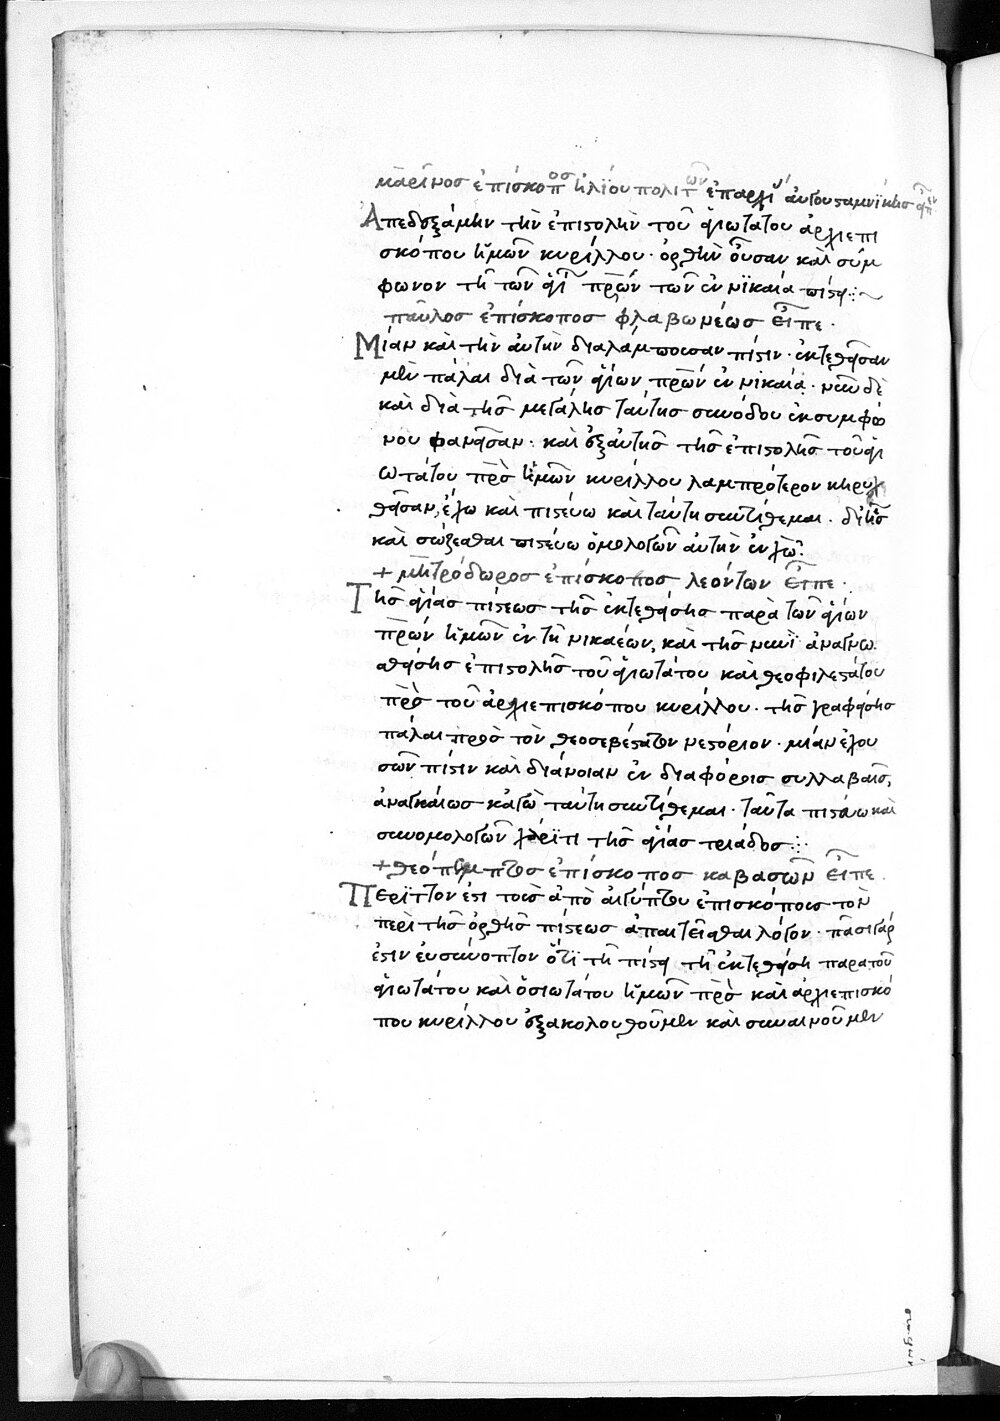 μαρῖνος ἐπίσκοπος ἡλϊουπολιτῶν ἐπαρχί αὐγουσταμνϊκῆς εἶπεν
Ἀπεδεξάμην τὴν ἐπιστολὴν τοῦ ἁγιωτάτου ἀρχιεπι
σκόπου ἡμῶν κυρίλλου· ὀρθὴν οὖσαν καὶ σύμ
φωνον τῆ τῶν ἁγί πρῶν τῶν ἐν νϊκαία πίστει:~
παῦλος ἐπίσκοπος φλαβωνέως εἶπε·
Μίαν καὶ τὴν αὐτὴν διαλάμπουσαν πίστιν· ἐκτεθεῖσαν
μὲν πάλαι διὰ τῶν ἁγίων πρῶν ἐν νικαία· νῦν δὲ
καὶ διὰ τῆς μεγάλης ταύτης συνόδου ἐκ συμφώ
νου φανεῖσαν· καὶ ἐξ αὐτῆς τῆς ἐπιστολῆς τοῦ ἁγι
ωτάτου πρς ἡμῶν κυρίλλου λαμπρότερον κηρυχ
θεῖσαν, ἔχω καὶ πιστεύω καὶ ταύτη συντίθεμαι· δι' ἧς
καὶ σώζεσθαι πιστεύω ὁμολογῶν αὐτὴν ἐν χω:
+ μητρόδωρος ἐπίσκοπος λεόντων εἶπε·
Τῆς ἁγίας πίστεως τῆς ἐκτεθείσης παρὰ τῶν ἁγίων
πρων ἡμῶν ἐν τῆ νικαέων, καὶ τῆς νυνὶ ἀναγνω
σθείσης ἐπιστολῆς τοῦ ἁγιωτάτου καὶ θεοφιλεστάτου
πρς τοῦ ἀρχιεπισκόπου κυρίλλου· τῆς γραφείσης
πάλαι πρὸς τὸν θεοσεβέστατον νεστόριον· μίαν ἐχου
σῶν πίστιν καὶ διάνοιαν ἐν διαφόροις συλλαβαῖς,
ἀναγκαίως κἀγὼ ταύτη συντίθεμαι· ταῦτα πιστεύω καὶ
συνομολογῶν χάρϊτι τῆς ἁγίας τριάδος:·
+ θεόπεμπτος ἐπίσκοπος καβασῶν εἶπε·
Περϊττόν ἐστι τοῖς ἀπὸ αἰγύπτου ἐπισκόποις τὸν
περὶ τῆς ὀρθῆς πίστεως ἀπαιτεῖσθαι λόγον· πᾶσι γάρ
ἐστιν εὐσύνοπτον ὅτϊ τῆ πίστει τῆ ἐκτεθείση παρὰ τοῦ
ἁγιωτάτου καὶ ὁσιωτάτου ἡμῶν πρς καὶ ἀρχιεπισκό
που κυρίλλου ἐξακολουθοῦμεν καὶ συναινοῦμεν